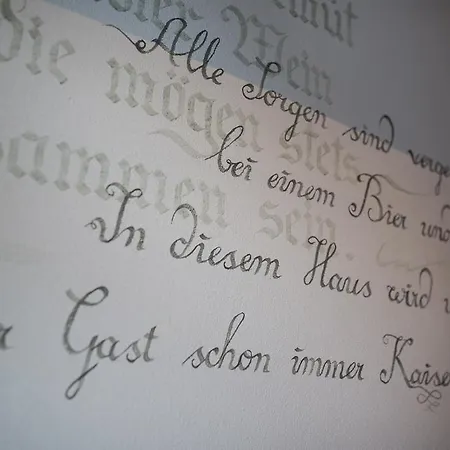 Wein
die mögen stets
sammen sein.
Alle Sorgen sind
bei einem Bier und
In diesem Haus wird
Gast schon immer Kaise